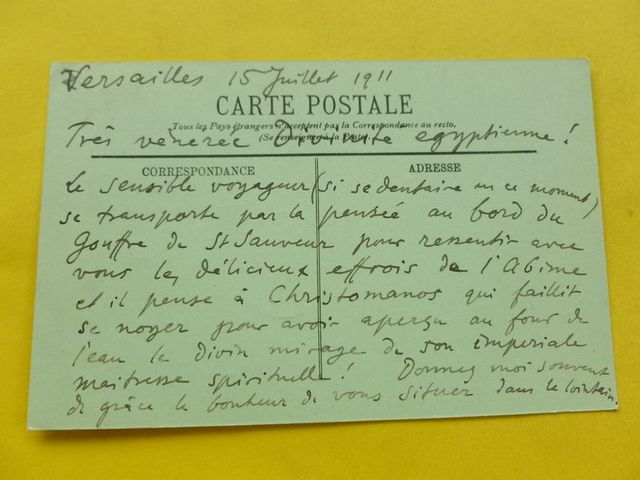 Versailles 15 Juillet 1911
CARTE POSTALE
Tous les Pays étrangers n'acceptent pas la Correspondance au recto.
(Se renseigner à la Poste)
Très vénérée Divinité égyptienne !
CORRESPONDANCE ADRESSE
Le sensible voyageur (si sedentaire en ce moment)
se transporte par la pensée au bord du
Gouffre de St Sauveur pour ressentir avec
vous les délicieux effrois de l'Abime
et il pense à Christomanos qui faillit
se noyer pour avoir aperçu au fond de
l'eau le divin mirage de son imperiale
maitresse spirituelle ! Donnez moi souvent
de grâce le bonheur de vous situer dans le lointain.